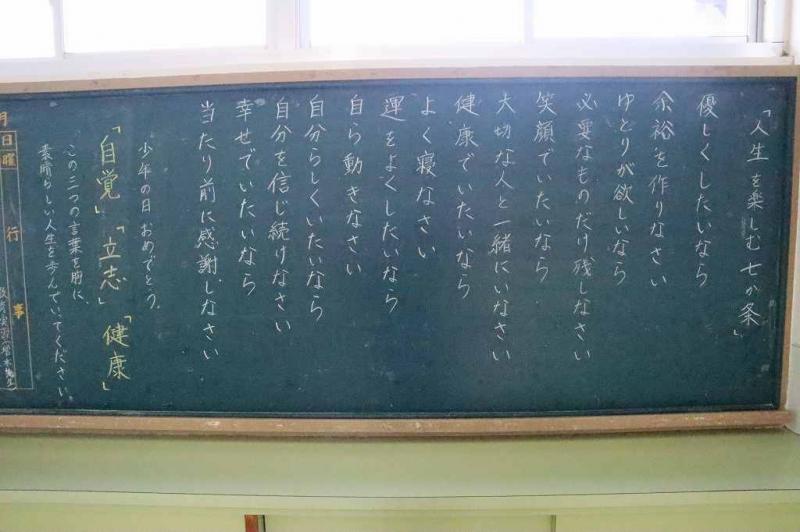 「人生を楽しむ七か条」
優しくしたいなら
余裕を作りなさい
ゆとりが欲しいなら
必要なものだけ残しなさい
笑顔でいたいなら
大切な人と一緒にいなさい
健康でいたいなら
よく寝なさい
運をよくしたいなら
自ら動きなさい
自分らしくいたいなら
自分を信じ続けなさい
幸せでいたいなら
当たり前に感謝しなさい
少年の日おめでとう。
「自覚」「立志」「健康」
この三つの言葉を胸に、
素晴らしい人生を歩んでいてください
行事
月
日
曜